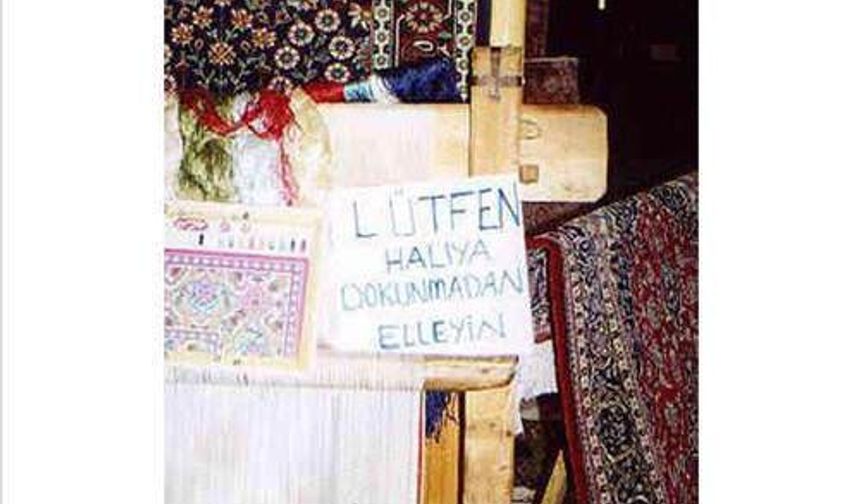 LÜTFEN
HALIYA
DOKUNMADAN
ELLEYİN